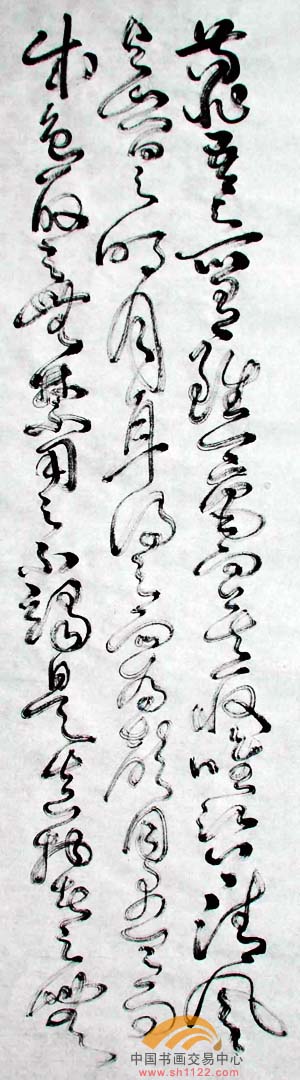 苟非吾之所有雖一毫而莫取唯江上之清風
與山間之明月耳得之而為聲目遇之而
成色取之無禁用之不竭是造物者之無
中国书画交易中心
www.sh1122.com